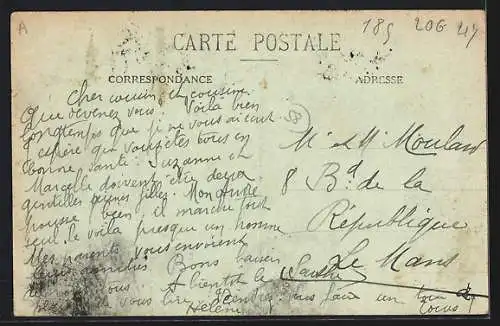 A
185 206 247
CARTE POSTALE
CORRESPONDANCE
ADRESSE
Cher cousin et cousine
Que devenez vous. Voila bien
longtemps que je ne vous ai écrit
J'espère que vous êtes tous en
bonne santé. Suzanne et
Marcelle doivent être deux
gentilles petites filles. Mon André
pousse bien, il marche tout
seul le voila presque un homme
Mes parents vous envoient
leurs amitiés. Bons baisers
vous A bientôt le
vous lire
Hélène
M et Mme Moulard
8 Bd de la
République
Le Mans
Sarthe
un
tous